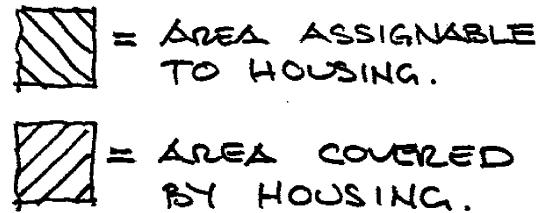 = AREA ASSIGNABLE
TO HOUSING.
= AREA COVERED
BY HOUSING.